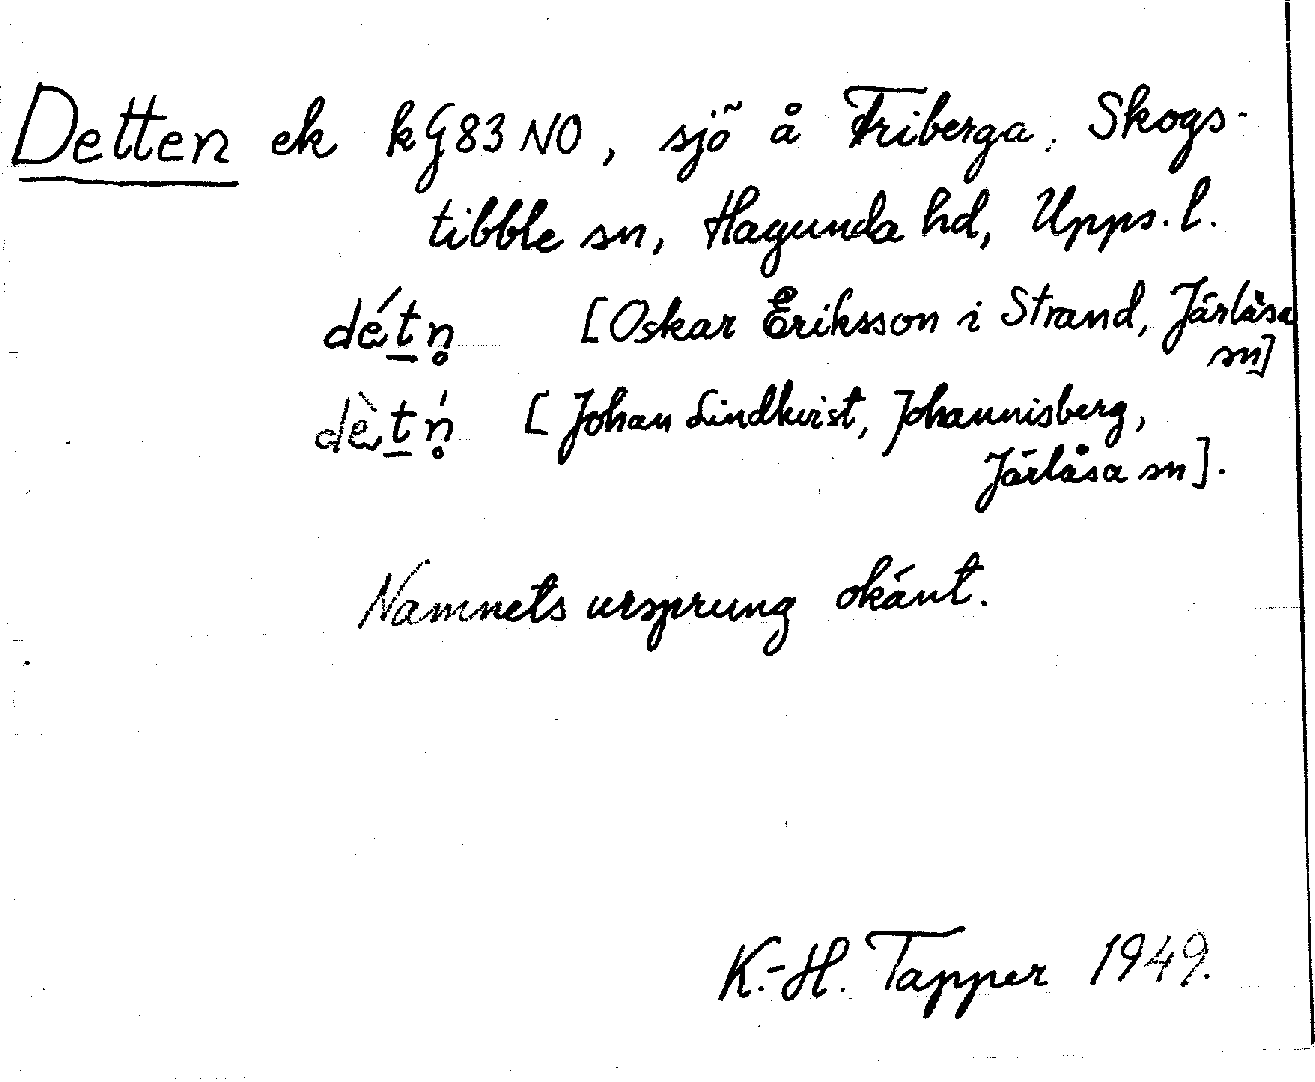 Detten ek kG83 NO, sjö å Friberga, Skogs-
tibble sn, Hagunda hd, Upps. l.
dét̲n̥ [Oskar Eriksson i Strand, Järlåsa
sn]
dèt̲ń̥ [Johan Lindkvist, Johannisberg,
Järlåsa sn].
Namnets ursprung okänt.
K.-H. Tapper 1949.